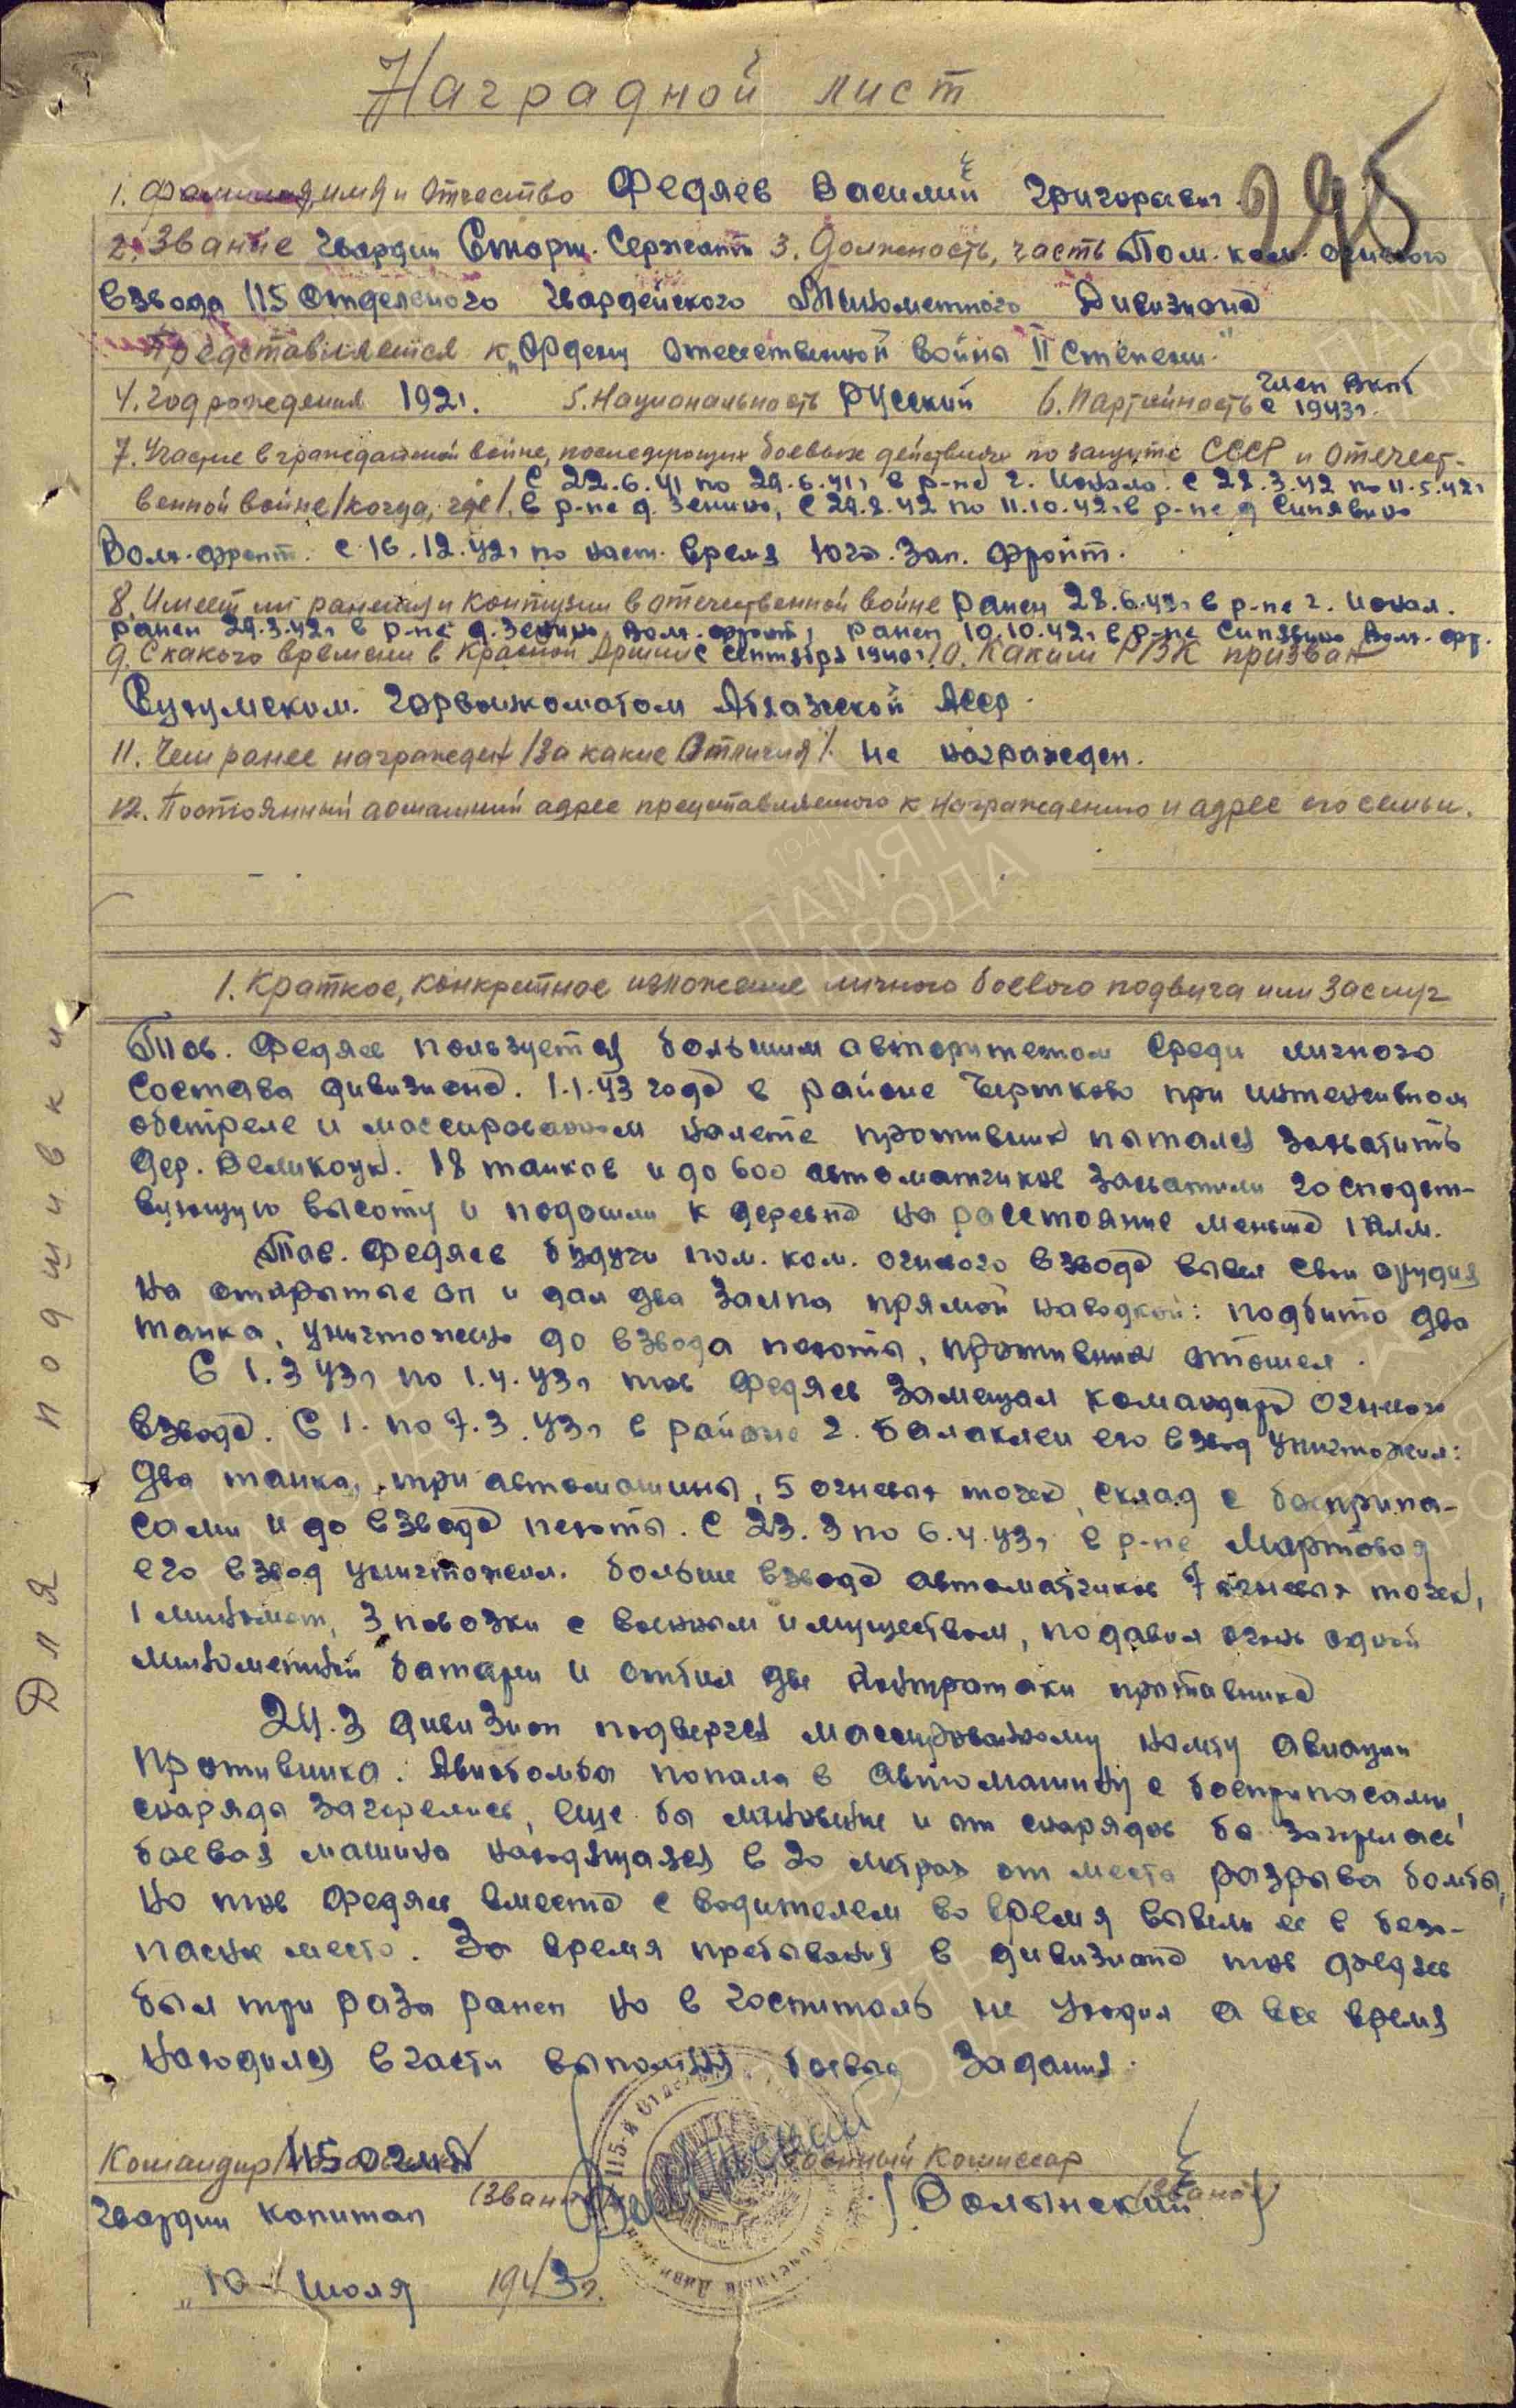 Наградной лист
295
1. Фамилия, имя и Отчество Федяев Василий Григорьевич.
2. Звание Гвардии Старш. Сержант 3. Должность, часть Пом. ком. огневого
взвода 115 Отдельного Гвардейского Минометного Дивизиона
Представляется к „Ордену Отечественной войны II степени"
4. Год рождения 1921. 5. Национальность Русский 6. Партийность член ВКПб
с 1943г.
7. Участие в гражданской войне, последующих боевых действиях по защите СССР и Отечест-
с 22.6.41 по 29.6.41г в р-не г. с 22.3.42 по 11.5.42г
венной войне /когда, где/. в р-не д. Зенино, с 29.8.42 по 11.10.42г в р-не д Синявино
Волх. фронт. с 16.12.42г по наст. время Юго-Зап. Фронт.
8. Имеет ли ранения и контузии в отечественной войне ранен 28.6.41г в р-не г.
ранен 29.3.42г в р-не д. Зенино Волх. фронт, ранен 10.10.42г в р-не Синявино Волх. фр.
9. С какого времени в Красной Армии с сентября 1940г. 10. Каким РВК призван
Сухумским. Горвоенкоматом Абхазской АССР.
11. Чем ранее награжден /за какие Отличия/. не награжден.
12. Постоянный домашний адрес представляемого к награждению и адрес его семьи.
1. Краткое, конкретное изложение личного боевого подвига или заслуг
Тов. Федяев пользуется большим авторитетом среди личного
состава дивизиона. 1.1.43 года в районе Чертково при интенсивном
обстреле и массированном налете противник пытался захватить
дер. Великоцк. 18 танков и до 600 автоматчиков захватили господст-
вующую высоту и подошли к деревне на расстояние меньше 1 клм.
Тов. Федяев будучи пом. ком. огневого взвода вывел свои орудия
на открытые оп и дал два залпа прямой наводкой: подбито два
танка, уничтожено до взвода пехоты, противник отошел.
С 1.3 43г по 1.4.43г тов Федяев замещал командира огневого
взвода. С 1. по 7.3.43г в районе г. Балаклеи его взвод уничтожил:
два танка, три автомашины, 5 огневых точек, склад с боеприпа-
сами и до взвода пехоты. С 23.3 по 6.4.43г в р-не Мартовая
его взвод уничтожил больше взвода автоматчиков 7 огневых точек,
1 миномет, 3 повозки с военным имуществом, подавил огонь одной
минометной батареи и отбил две контратаки противника
24.3 дивизион подвергся массированному налету авиации
противника. Авиабомба попала в автомашину с боеприпасами,
снаряды загорелись, еще бы мгновение и от снарядов бы загорелась
боевая машина находящаяся в 20 метрах от места разрыва бомбы,
но тов Федяев вместе с водителем во время вывели ее в безо-
пасное место. За время пребывания в дивизионе тов Федяев
был три раза ранен но в госпиталь не уходил а все время
находился в части выполняя боевые задания.
Командир 115 ОГМД Военный Комиссар
(звание) (звание)
Гвардии капитан /Волынский/
„10" Июля 1943г.
Для подшивки
ПАМЯТЬ НАРОДА